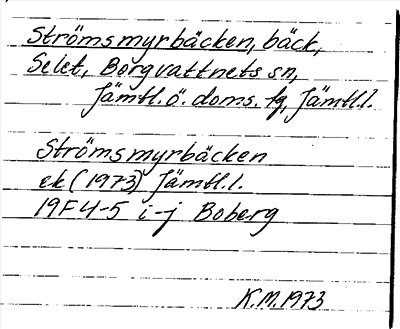 Strömsmyrbäcken, bäck,
Selet, Borgvattnets sn,
Jämtl.ö. doms. tg, Jämtl.l.
Strömsmyrbäcken
ek (1973) Jämtl.l.
19F 4-5 i-j Boberg
K.M.1973